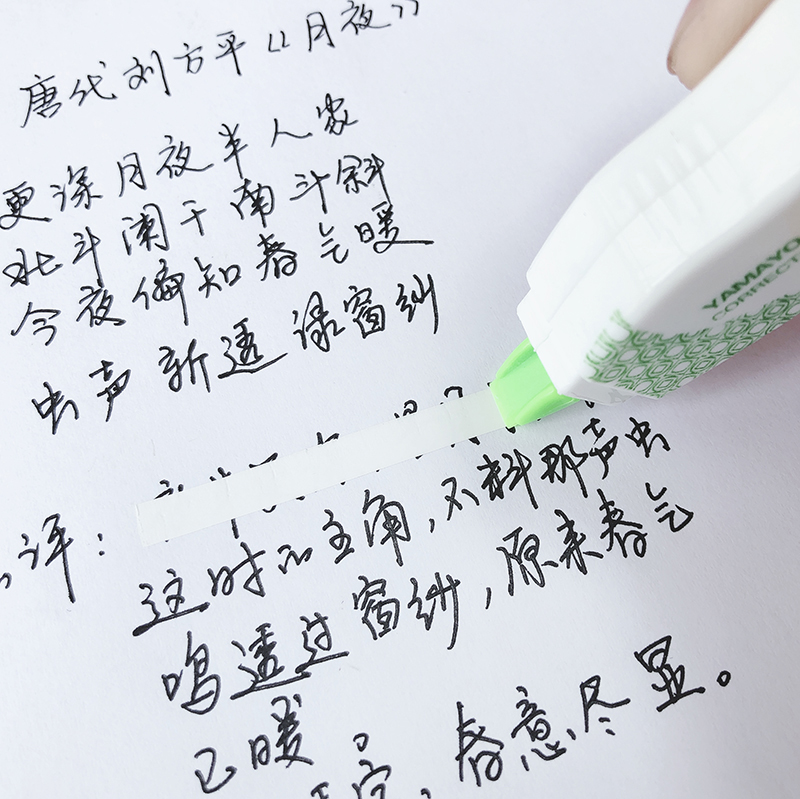 唐代刘方平《月夜》
更深月夜半人家
北斗阑干南斗斜
今夜偏知春气暖
虫声新透绿窗纱
评：
这时的主角，不料那声虫
鸣透过窗纱，原来春气
已暖。
，春意尽显。
YAMAYO
CORRECT